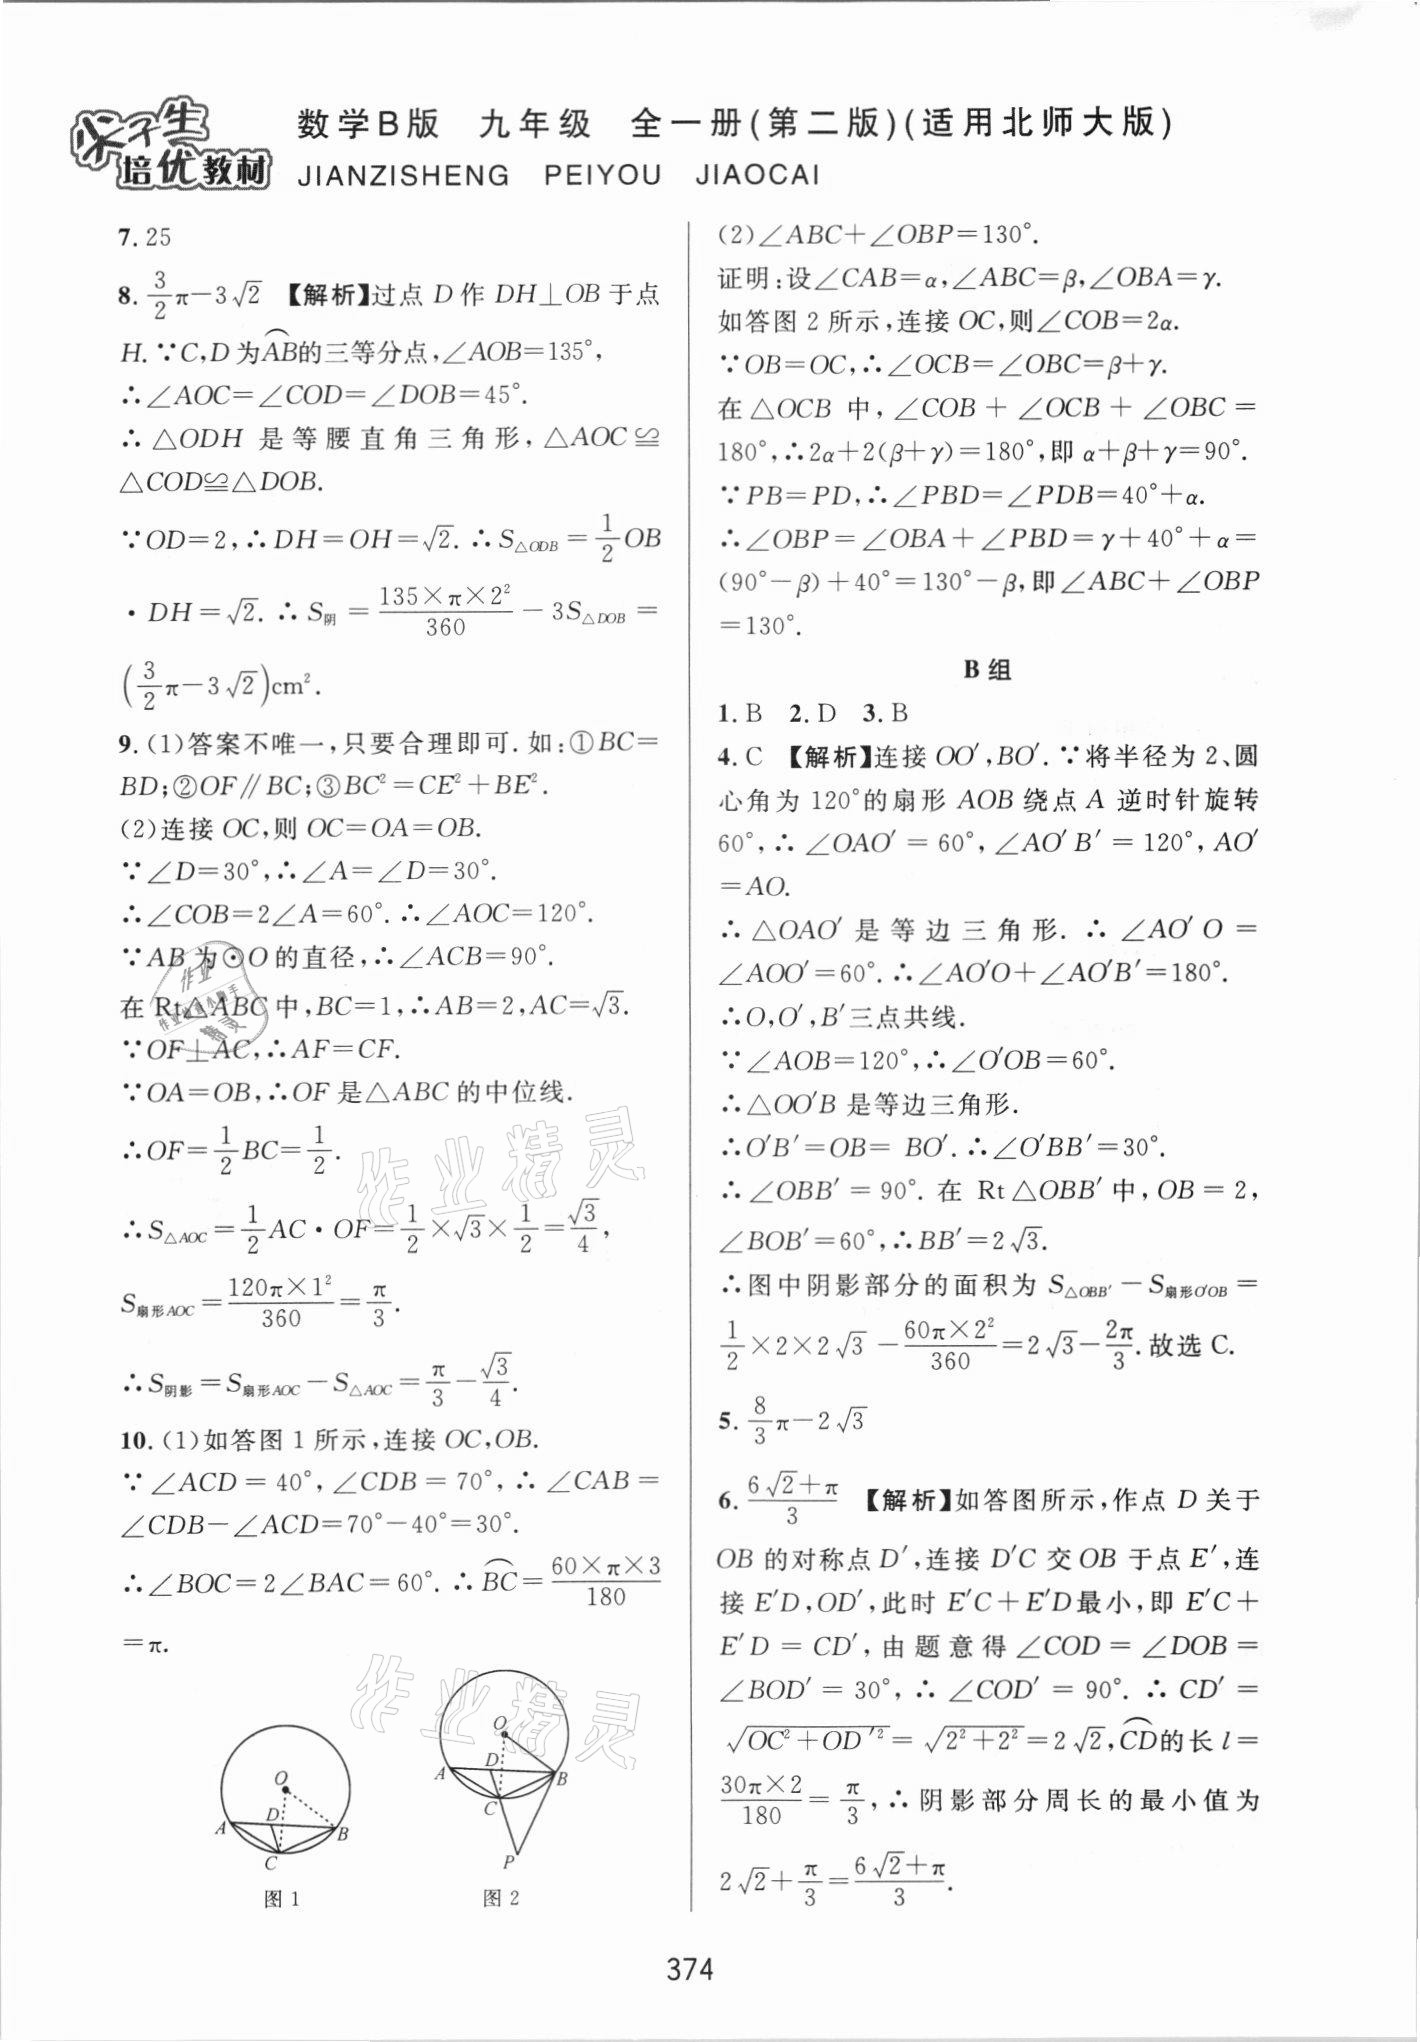 尖子生
培优教材
数学B版 九年级 全一册(第二版)(适用北师大版)
JIANZISHENG PEIYOU JIAOCAI
7. 25
8. $\frac{3}{2}$π－3√2 【解析】过点 D 作 DH⊥OB 于点
H. ∵C,D 为$\overset{\frown}{AB}$的三等分点,∠AOB=135°,
∴∠AOC=∠COD=∠DOB=45°.
∴△ODH 是等腰直角三角形,△AOC≌
△COD≌△DOB.
∵OD=2,∴DH=OH=√2. ∴S△ODB=$\frac{1}{2}$OB
·DH=√2. ∴S阴=$\frac{135×π×2^2}{360}$－3S△DOB=
($\frac{3}{2}$π－3√2)cm².
9. (1)答案不唯一,只要合理即可. 如:①BC=
BD;②OF∥BC;③BC²=CE²+BE².
(2)连接 OC,则 OC=OA=OB.
∵∠D=30°,∴∠A=∠D=30°.
∴∠COB=2∠A=60°. ∴∠AOC=120°.
∵AB 为⊙O 的直径,∴∠ACB=90°.
在 Rt△ABC 中,BC=1,∴AB=2,AC=√3.
∵OF⊥AC,∴AF=CF.
∵OA=OB,∴OF 是△ABC 的中位线.
∴OF=$\frac{1}{2}$BC=$\frac{1}{2}$.
∴S△AOC=$\frac{1}{2}$AC·OF=$\frac{1}{2}$×√3×$\frac{1}{2}$=$\frac{√3}{4}$,
S扇形AOC=$\frac{120π×1^2}{360}$=$\frac{π}{3}$.
∴S阴影=S扇形AOC－S△AOC=$\frac{π}{3}$－$\frac{√3}{4}$.
10. (1)如答图 1 所示,连接 OC,OB.
∵∠ACD=40°,∠CDB=70°,∴∠CAB=
∠CDB－∠ACD=70°－40°=30°.
∴∠BOC=2∠BAC=60°. ∴$\overset{\frown}{BC}$=$\frac{60×π×3}{180}$
=π.
O
A
D
B
C
图 1
O
A
D
B
C
P
图 2
(2)∠ABC+∠OBP=130°.
证明:设∠CAB=α,∠ABC=β,∠OBA=γ.
如答图 2 所示,连接 OC,则∠COB=2α.
∵OB=OC,∴∠OCB=∠OBC=β+γ.
在△OCB 中,∠COB+∠OCB+∠OBC=
180°,∴2α+2(β+γ)=180°,即 α+β+γ=90°.
∵PB=PD,∴∠PBD=∠PDB=40°+α.
∴∠OBP=∠OBA+∠PBD=γ+40°+α=
(90°－β)+40°=130°－β,即∠ABC+∠OBP
=130°.
B 组
1. B 2. D 3. B
4. C 【解析】连接 OO′,BO′. ∵将半径为 2、圆
心角为 120°的扇形 AOB 绕点 A 逆时针旋转
60°,∴∠OAO′=60°,∠AO′B′=120°,AO′
=AO.
∴△OAO′是等边三角形. ∴∠AO′O=
∠AOO′=60°. ∴∠AO′O+∠AO′B′=180°.
∴O,O′,B′三点共线.
∵∠AOB=120°,∴∠O′OB=60°.
∴△OO′B 是等边三角形.
∴O′B′=OB=BO′. ∴∠O′BB′=30°.
∴∠OBB′=90°. 在 Rt△OBB′中,OB=2,
∠BOB′=60°,∴BB′=2√3.
∴图中阴影部分的面积为 S△OBB′－S扇形O′OB=
$\frac{1}{2}$×2×2√3－$\frac{60π×2^2}{360}$=2√3－$\frac{2π}{3}$. 故选 C.
5. $\frac{8}{3}$π－2√3
6. $\frac{6√2+π}{3}$ 【解析】如答图所示,作点 D 关于
OB 的对称点 D′,连接 D′C 交 OB 于点 E′,连
接 E′D,OD′,此时 E′C+E′D最小,即 E′C+
E′D=CD′,由题意得∠COD=∠DOB=
∠BOD′=30°,∴∠COD′=90°. ∴CD′=
$\sqrt{OC^2+OD′^2}$=$\sqrt{2^2+2^2}$=2√2,$\overset{\frown}{CD}$的长 l=
$\frac{30π×2}{180}$=$\frac{π}{3}$,∴阴影部分周长的最小值为
2√2+$\frac{π}{3}$=$\frac{6√2+π}{3}$.
作业精灵
作业精灵
374